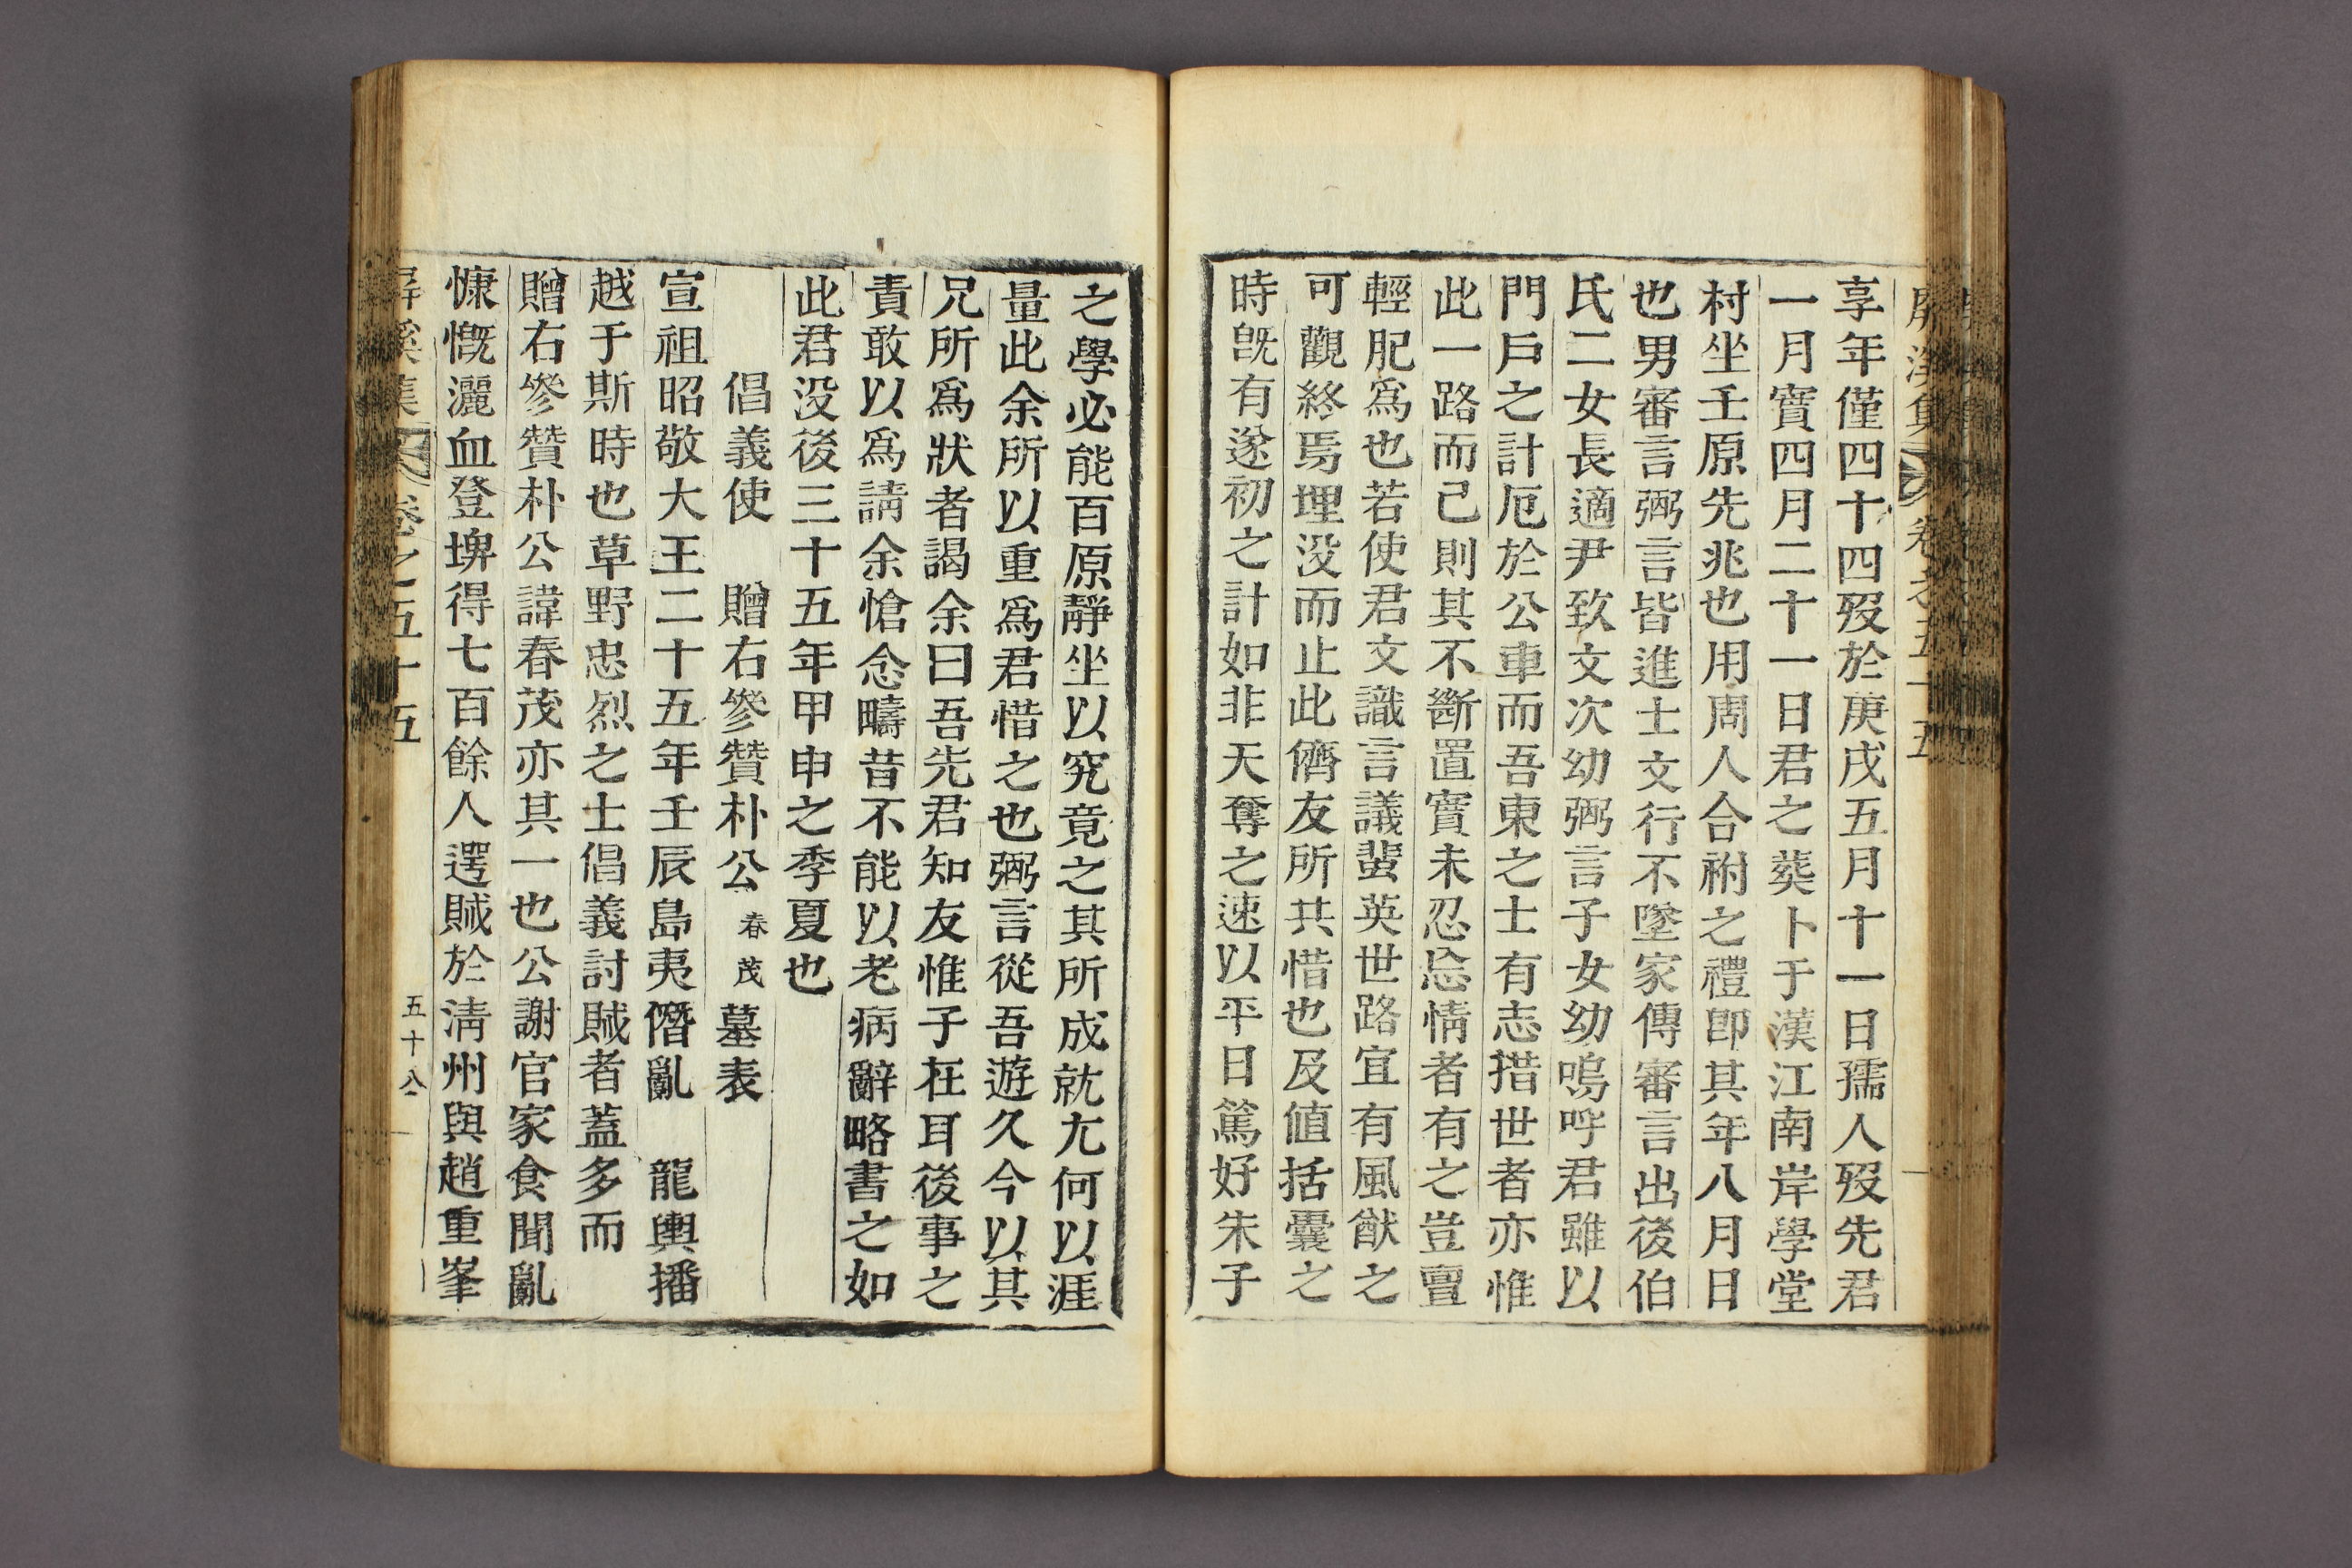 享年僅四十四歿於庚戌五月十一日孺人歿先君
一月實四月二十一日君之葬卜于漢江南岸學堂
村坐壬原先兆也用周人合祔之禮卽其年八月日
也男審言弼言皆進士文行不墜家傳審言出後伯
氏二女長適尹致文次幼弼言子女幼嗚呼君雖以
門戶之計厄於公車而吾東之士有志措世者亦惟
此一路而已則其不斷置實未忍忘情者有之豈亶
輕肥爲也若使君文識言議蜚英世路宜有風猷之
可觀終焉埋没而止此儕友所共惜也及值括囊之
時旣有遂初之計如非天奪之速以平日篤好朱子
之學必能百原靜坐以究竟之其所成就尤何以涯
量此余所以重爲君惜之也弼言從吾遊久今以其
兄所爲狀者謁余曰吾先君知友惟子在耳後事之
責敢以爲請余愴念疇昔不能以老病辭略書之如
此君没後三十五年甲申之季夏也
倡義使 贈右參贊朴公春茂墓表
宣祖昭敬大王二十五年壬辰島夷僭亂 龍輿播
越于斯時也草野忠烈之士倡義討賊者蓋多而
贈右參贊朴公諱春茂亦其一也公謝官家食聞亂
慷慨灑血登埤得七百餘人遌賊於淸州與趙重峯
屛溪集 卷之五十五 五十八